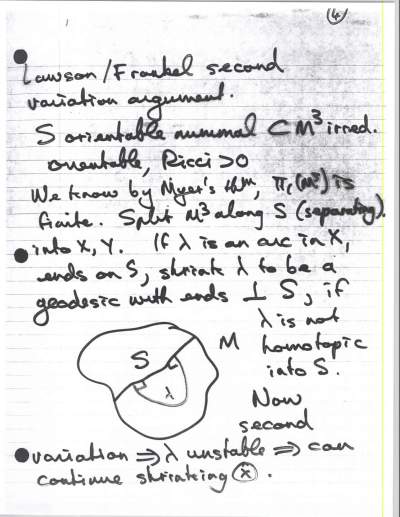 ④
Lawson/Frankel second
variation argument.
S orientable minimal ⊂ M³ irred.
orientable, Ricci > 0
We know by Myer's thm, π₁(M³) is
finite. Split M³ along S (separating).
into X, Y. If λ is an arc in X,
ends on S, shrink λ to be a
geodesic with ends ⊥ S, if
λ is not
M homotopic
S into S.
λ Now
second
variation ⇒ λ unstable ⇒ can
continue shrinking ⊗.